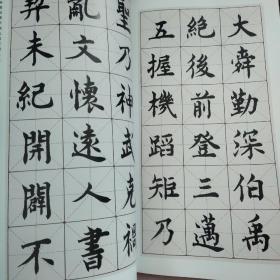 大舜勤深伯禹
絶後前登三邁
五握機蹈矩乃
聖乃神武克禍
亂文懷遠人書
未紀開闢不